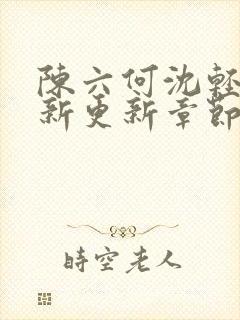 陳六何沈輕
新更新章節
時空老人